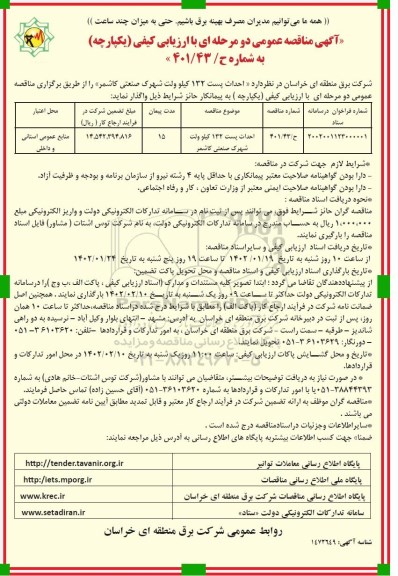 (( همه ما می‌توانیم مدیران مصرف بهینه برق باشیم. حتی به میزان چند ساعت ))
«آگهی مناقصه عمومی دو مرحله ای با ارزیابی کیفی (یکپارچه)
به شماره ح/ ۴۰۱/۴۳ »
شرکت برق منطقه ای خراسان در نظردارد « احداث پست ۱۳۲ کیلو ولت شهرک صنعتی کاشمر» را از طریق برگزاری مناقصه
عمومی دو مرحله ای با ارزیابی کیفی (یکپارچه ) به پیمانکار حائز شرایط ذیل واگذار نماید:
شماره فراخوان درسامانه ستاد | شماره مناقصه | موضوع مناقصه | مدت پیمان | مبلغ تضمین شرکت در فرآیند ارجاع کار ( ریال) | محل اعتبار
۲۰۰۲۰۰۱۱۲۳۰۰۰۰۰۱ | ح/۴۰۱/۴۳ | احداث پست ۱۳۲ کیلو ولت شهرک صنعتی کاشمر | ۱۵ | ۱۴,۵۴۲,۳۹۴,۸۱۶ | منابع عمومی استانی و داخلی
*شرایط لازم جهت شرکت در مناقصه:
- دارا بودن گواهینامه صلاحیت معتبر پیمانکاری با حداقل پایه ۴ رشته نیرو از سازمان برنامه و بودجه و ظرفیت آزاد.
- دارا بودن گواهینامه صلاحیت ایمنی معتبر از وزارت تعاون ، کار و رفاه اجتماعی.
*نحوه دریافت اسناد مناقصه :
مناقصه گران حائز شرایط فوق، می توانند پس از ثبت نام در سامانه تدارکات الکترونیکی دولت و واریز الکترونیکی مبلغ
۱,۰۰۰,۰۰۰ ریال به حساب مندرج در سامانه تدارکات الکترونیکی دولت، به نام شرکت توس اشتات ( مشاور) فایل اسناد
مناقصه را بارگیری نمایند.
*تاریخ دریافت اسناد ارزیابی کیفی و سایراسناد مناقصه:
از ساعت ۱۰ روز شنبه به تاریخ ۱۴۰۲/۰۱/۱۹ تا ساعت ۱۹ روز پنج شنبه به تاریخ ۱۴۰۲/۰۱/۲۴
*تاریخ بارگذاری اسناد ارزیابی کیفی و اسناد مناقصه و محل تحویل پاکت تضمین:
از پیشنهاددهندگان تقاضا می گردد : ابتدا تصویر کلیه مستندات و مدارک (اسناد ارزیابی کیفی ، پاکت الف ،ب وج )را درسامانه
تدارکات الکترونیکی دولت حداکثر تا ساعت ۰۹ روز یک شنبه به تاریخ ۱۴۰۲/۰۲/۱۰ بارگذاری نمایند ، همچنین اصل
ضمانت نامه شرکت در فرآیند ارجاع کار (پاکت الف) را مطابق با شرایط درج شده دراسناد مناقصه،حداکثر تا ساعت ۱۰ همان
روز، پس از ثبت در دبیرخانه شرکت برق منطقه ای خراسان به آدرس: مشهد – انتهای بلوار وکیل آباد – نرسیده به دو راهی
شاندیز – طرقبه – سمت راست – شرکت برق منطقه ای خراسان ، به امور تدارکات و قراردادها –تلفن: ۳۶۱۰۳۶۲۰-۰۵۱
– دورنگار: ۳۶۱۰۳۶۲۹-۰۵۱ تحویل نمایند.
*تاریخ و محل گشایش پاکات ارزیابی کیفی: ساعت ۱۱:۰۰ روزیک شنبه به تاریخ ۱۴۰۲/۰۲/۱۰ در محل امور تدارکات و
قراردادها.
* در صورت نیاز به دریافت توضیحات بیشتر، متقاضیان می توانند با مشاور(شرکت توس اشتات-خانم هادی) به شماره
۳۸۸۴۴۳۹۳-۰۵۱ و یا با امور تدارکات و قراردادها به شماره ۳۶۱۰۳۶۲۰-۰۵۱ (آقای حسین زاده) تماس حاصل فرمایند.
*مناقصه گران موظف به ارائه تضمین شرکت در فرآیند ارجاع کار معتبر و قابل تمدید مطابق آیین نامه تضمین معاملات دولتی
می باشند .
*سایراطلاعات وجزئیات دراسنادمناقصه درج شده است .
ضمناً جهت کسب اطلاعات بیشتربه پایگاه های اطلاع رسانی به آدرس ذیل مراجعه نمایند:
پایگاه اطلاع رسانی معاملات توانیر | http://tender.tavanir.org.ir
پایگاه ملی اطلاع رسانی مناقصات | http://iets.mporg.ir
پایگاه اطلاع رسانی مناقصات شرکت برق منطقه ای خراسان | www.krec.ir
سامانه تدارکات الکترونیکی دولت «ستاد» | www.setadiran.ir
روابط عمومی شرکت برق منطقه ای خراسان
شناسه آگهی: ۱۴۷۲۶۴۹